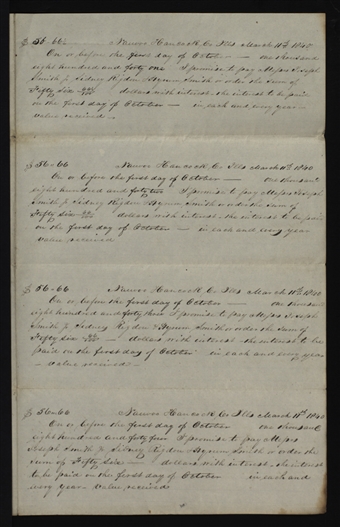 $ 56-66 Nauvoo Hancock Co Ills March 11th 1840
On or before the first day of October — one thousand
eight hundred and forty one I promise to pay Messrs Joseph
Smith Jr Sidney Rigdon & Hyrum Smith or order the sum of
Fifty Six 66/100 dollars with interest, the interest to be paid
on the first day of October — in each and every year
value received —
$ 56-66 Nauvoo Hancock Co Ills March 11th 1840
On or before the first day of October — one thousand
eight hundred and forty two I promise to pay Messrs Joseph
Smith Jr Sidney Rigdon & Hyrum Smith or order the sum of
Fifty Six 66/100 dollars with interest - the interest to be paid
on the first day of October — in each and every year
Value received
$ 56-66 Nauvoo Hancock Co Ills March 11th 1840
On or before the first day of October — one thousand
eight hundred and forty three I promise to pay Messrs Joseph
Smith Jr Sidney Rigdon & Hyrum Smith or order the sum of
Fifty Six 66/100 — dollars with interest the interest to be
paid on the first day of October in each and every year
— value received —
$ 56-66 Nauvoo Hancock Co Ills March 11th 1840
On or before the first day of October one thousand
eight hundred and forty four I promise to pay Messrs
Joseph Smith Jr Sidney Rigdon Hyrum Smith or order the
sum of Fifty Six — dollars with interest - the interest
to be paid on the first day of October in each and
every year Value received